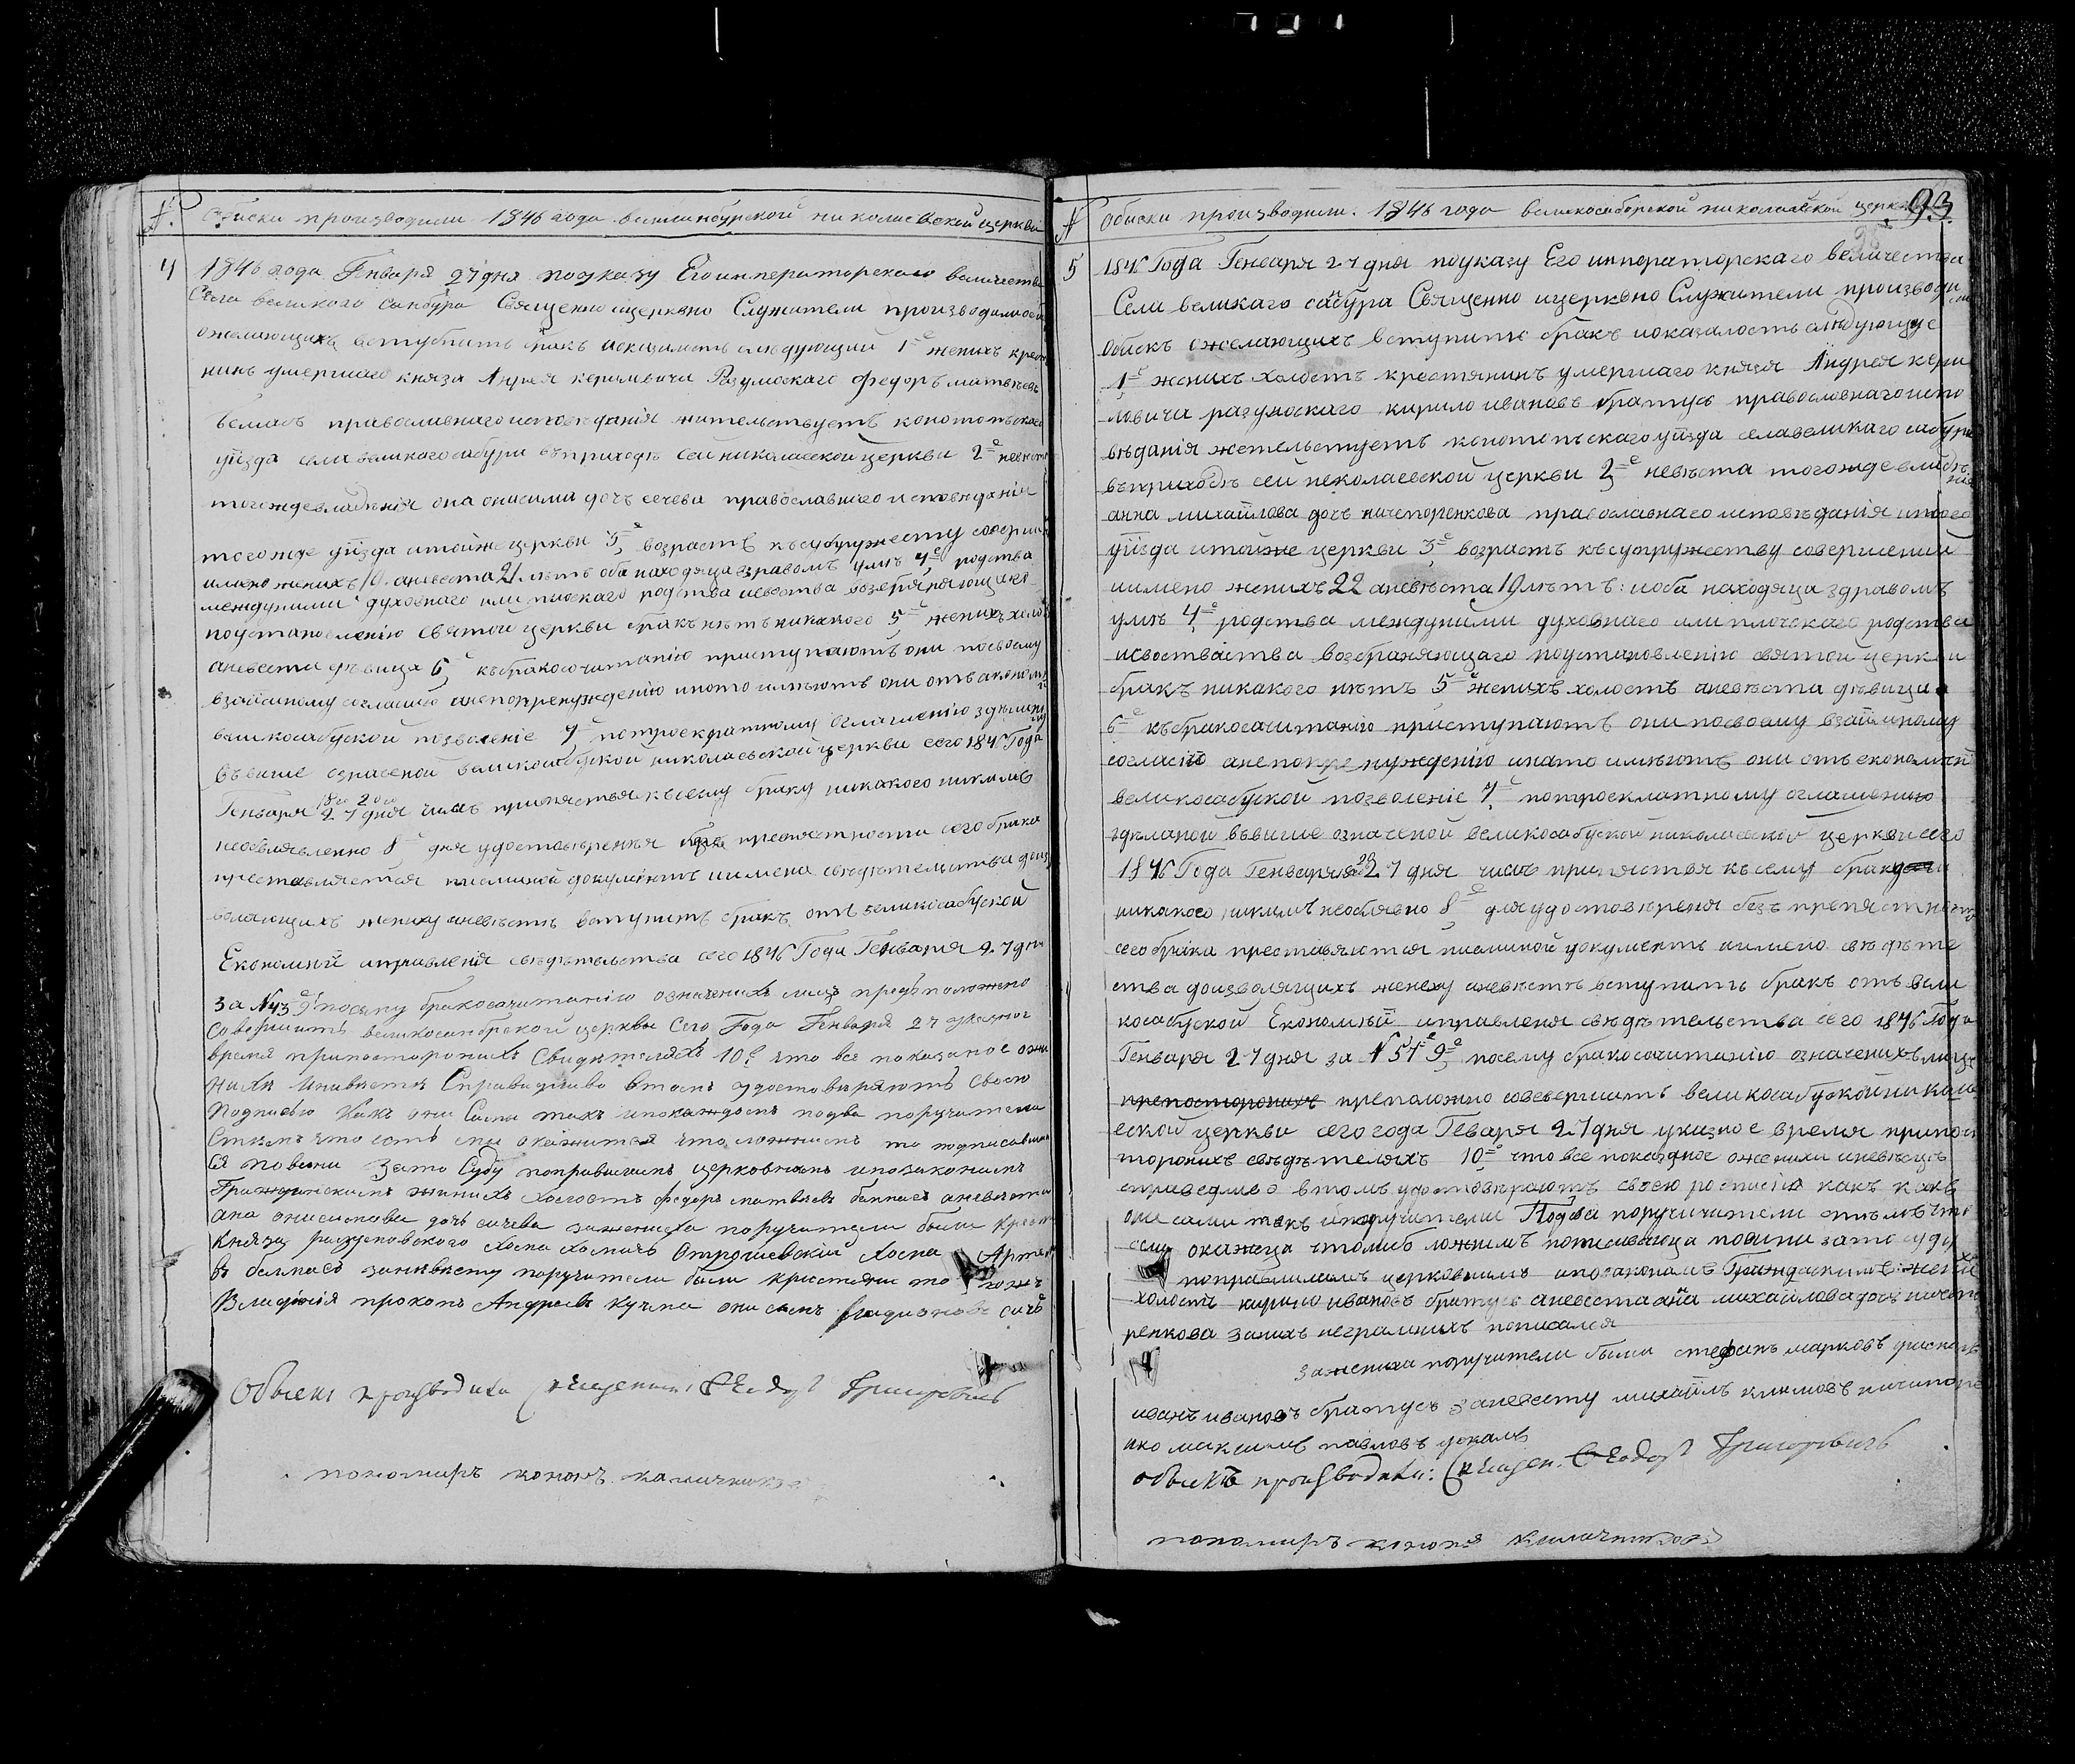 №. Обиски производили 1846 года николаевской церкви
4 1846 года Генваря 27 дня поуказу Его императорского величества
Села великого самбура Священно ицерквно Служители производили
ожелающихъ вступить бракъ иоказалость следующии 1е женихъ крестя
нинъ умершаго князя Андрея кериловича Разумовскаго федоръ матвеевъ
православнаго исповѣданія жительствуетъ конотопскаго
уйзда села великого самбура въприходѣ сей николаевской церкви 2е невеста
тогожде владѣнія она онисимова дочь сечева православнаго исповѣданія
тогожде уйзда итойже церкви 3е возрастъ ксубружеству совершен
имяно женихъ аневеста 21 летъ оба находяца здравомъ умѣ 4е родства
междуними духовнаго или плоскаго родства исвоства возбраняющаго
подстановлению святои церкви бракъ нетъ никакого 5 женихъ холостъ
аневеста дѣвица 6 къбракосочитанию приступаютъ они посвоему
взаимному согласию анепопренуждению инато имеютъ они отъ економии
великосабуской позволеніе 7 потроекратному оглашению зделаному
въвише означеной великосабуской николаевской церкви сего 1846 Года
Генваря 18го 20го 27 дня числъ припяства ксему браку никакого никимъ
необявлено 8 для удостоверенія безъ препятности сего брака
преставляется писмяной документъ имяно свѣдѣтельства доз
воляющихъ жениху аневестъ вступить бракъ отъ великосабуской
Економии управленія свѣдѣтельства сего 1846 Года Генваря 27 дня
за №43 9е посему бракосочитанію означенихъ лицъ предположено
Совершить великосамбрской церкви Сего Года Генваря 27 указное
время припостороннихъ Свидителяхъ 10е что все показаное ожи
нихѣ Иневисти Справидливо втомъ удостовиряютъ своею
Подписью Какъ они Сами такъ ипокаждомъ подва поручителя
Стимъ что естъ ли окажится что ложнимъ то подписавши
ся повини Зато Суду поправиламъ церковнимъ изаконамъ
Гражданскимъ женихъ Холостъ федоръ матвеевъ аневеста
ана онисимова дочь сичева зажениха поручители были крест
Князя разумовского Хома Хомичъ Хома Артем
в занивесту поручители были крестяне тогожъ
Владенія прокопъ Андреевъ Кучма онисимъ сичъ
Обыскъ производили Священникъ Феодоръ Григоровичъ
пономаръ кононъ
№ Обиски производили. 1846 года великосаборской николаевской церкви 93
5 1846 Года Генваря 27 дня поуказу Его императорскаго величества
Села великаго самбура Священно ицерквно Служители производили
обискъ ожелающихъ вступить бракъ иоказалость следующее
1е женихъ холостъ крестянинъ умершаго князя Андрея кери
ловича разумоскаго кирило ивановъ братусь православнаго испо
вѣданія жетельстуетъ конотопъскаго уйзда села великаго сабура
въприходѣ сей неколаевской церкви 2е невѣста тогождевладѣ
нія
анна михайлова дочь ничепоренкова православнаго исповѣданія итого
уйзда итойже церкви 3е возрастъ късупружеству совершений
иимено женихъ 22 аневѣста 19 лѣтъ: иоба находяца здравомъ
умѣ 4е родства междуними духовнаго или плочскаго родства
исвоства возбраняющаго подстановленію святой церкви
бракъ никакого нѣтъ 5е женихъ холостъ аневѣста дѣвица
6е къбракосачитанію приступаютъ они посвоему взаймному
согласію анепопренуждению инато имѣютъ они отъ економій
великосабуской позволеніе 7е потроекратному оглашенію
зделаной въвише означеной великосабуской николаевской церкви сего
1846 Года Генваря 27 дня числъ припяства къ сему браку
никакого никимъ необявено 8е для удостоверения безъ препятности
сего брака преставяются писмяной документъ иимено свѣдѣте
ства дозволящихъ жениху аневѣстъ вступить бракъ отъ вели
косабуской Економий управленя свѣдѣтельства сего 1846 Года
Генваря 27 дня за №51 9е посему бракосочитанію означенихъ лицъ
препосторонихъ преположно совевершить великосабускойникола
еской церкви сего года Геваря 27 дня указное время припос
торонихъ свѣдѣтеляхъ 10е что все показаное ожениха иневѣсте
справедливо втомъ удостовѣраютъ своею росписию какъ какъ
оне сами такъ ипоручители Подва поручичители стимъ что
если окажеца чтолибо ложнимъ пописавшеца повини зато суду
поправилимъ церковнимъ ипозаконамъ Граждаскимъ: жених
холостъ кирило ивановъ братусь аневеста ана михайлова дочь ничепо
ренкова занихъ неграмнихъ пописался
зажениха поручители были стефанъ марковъ
иванъ ивановъ братусь заневесту михайлъ климовъ ничипоре
нко максимъ павловъ
обыскъ производили: Священ. Феодоръ Григоровичъ
пономаръ кононъ